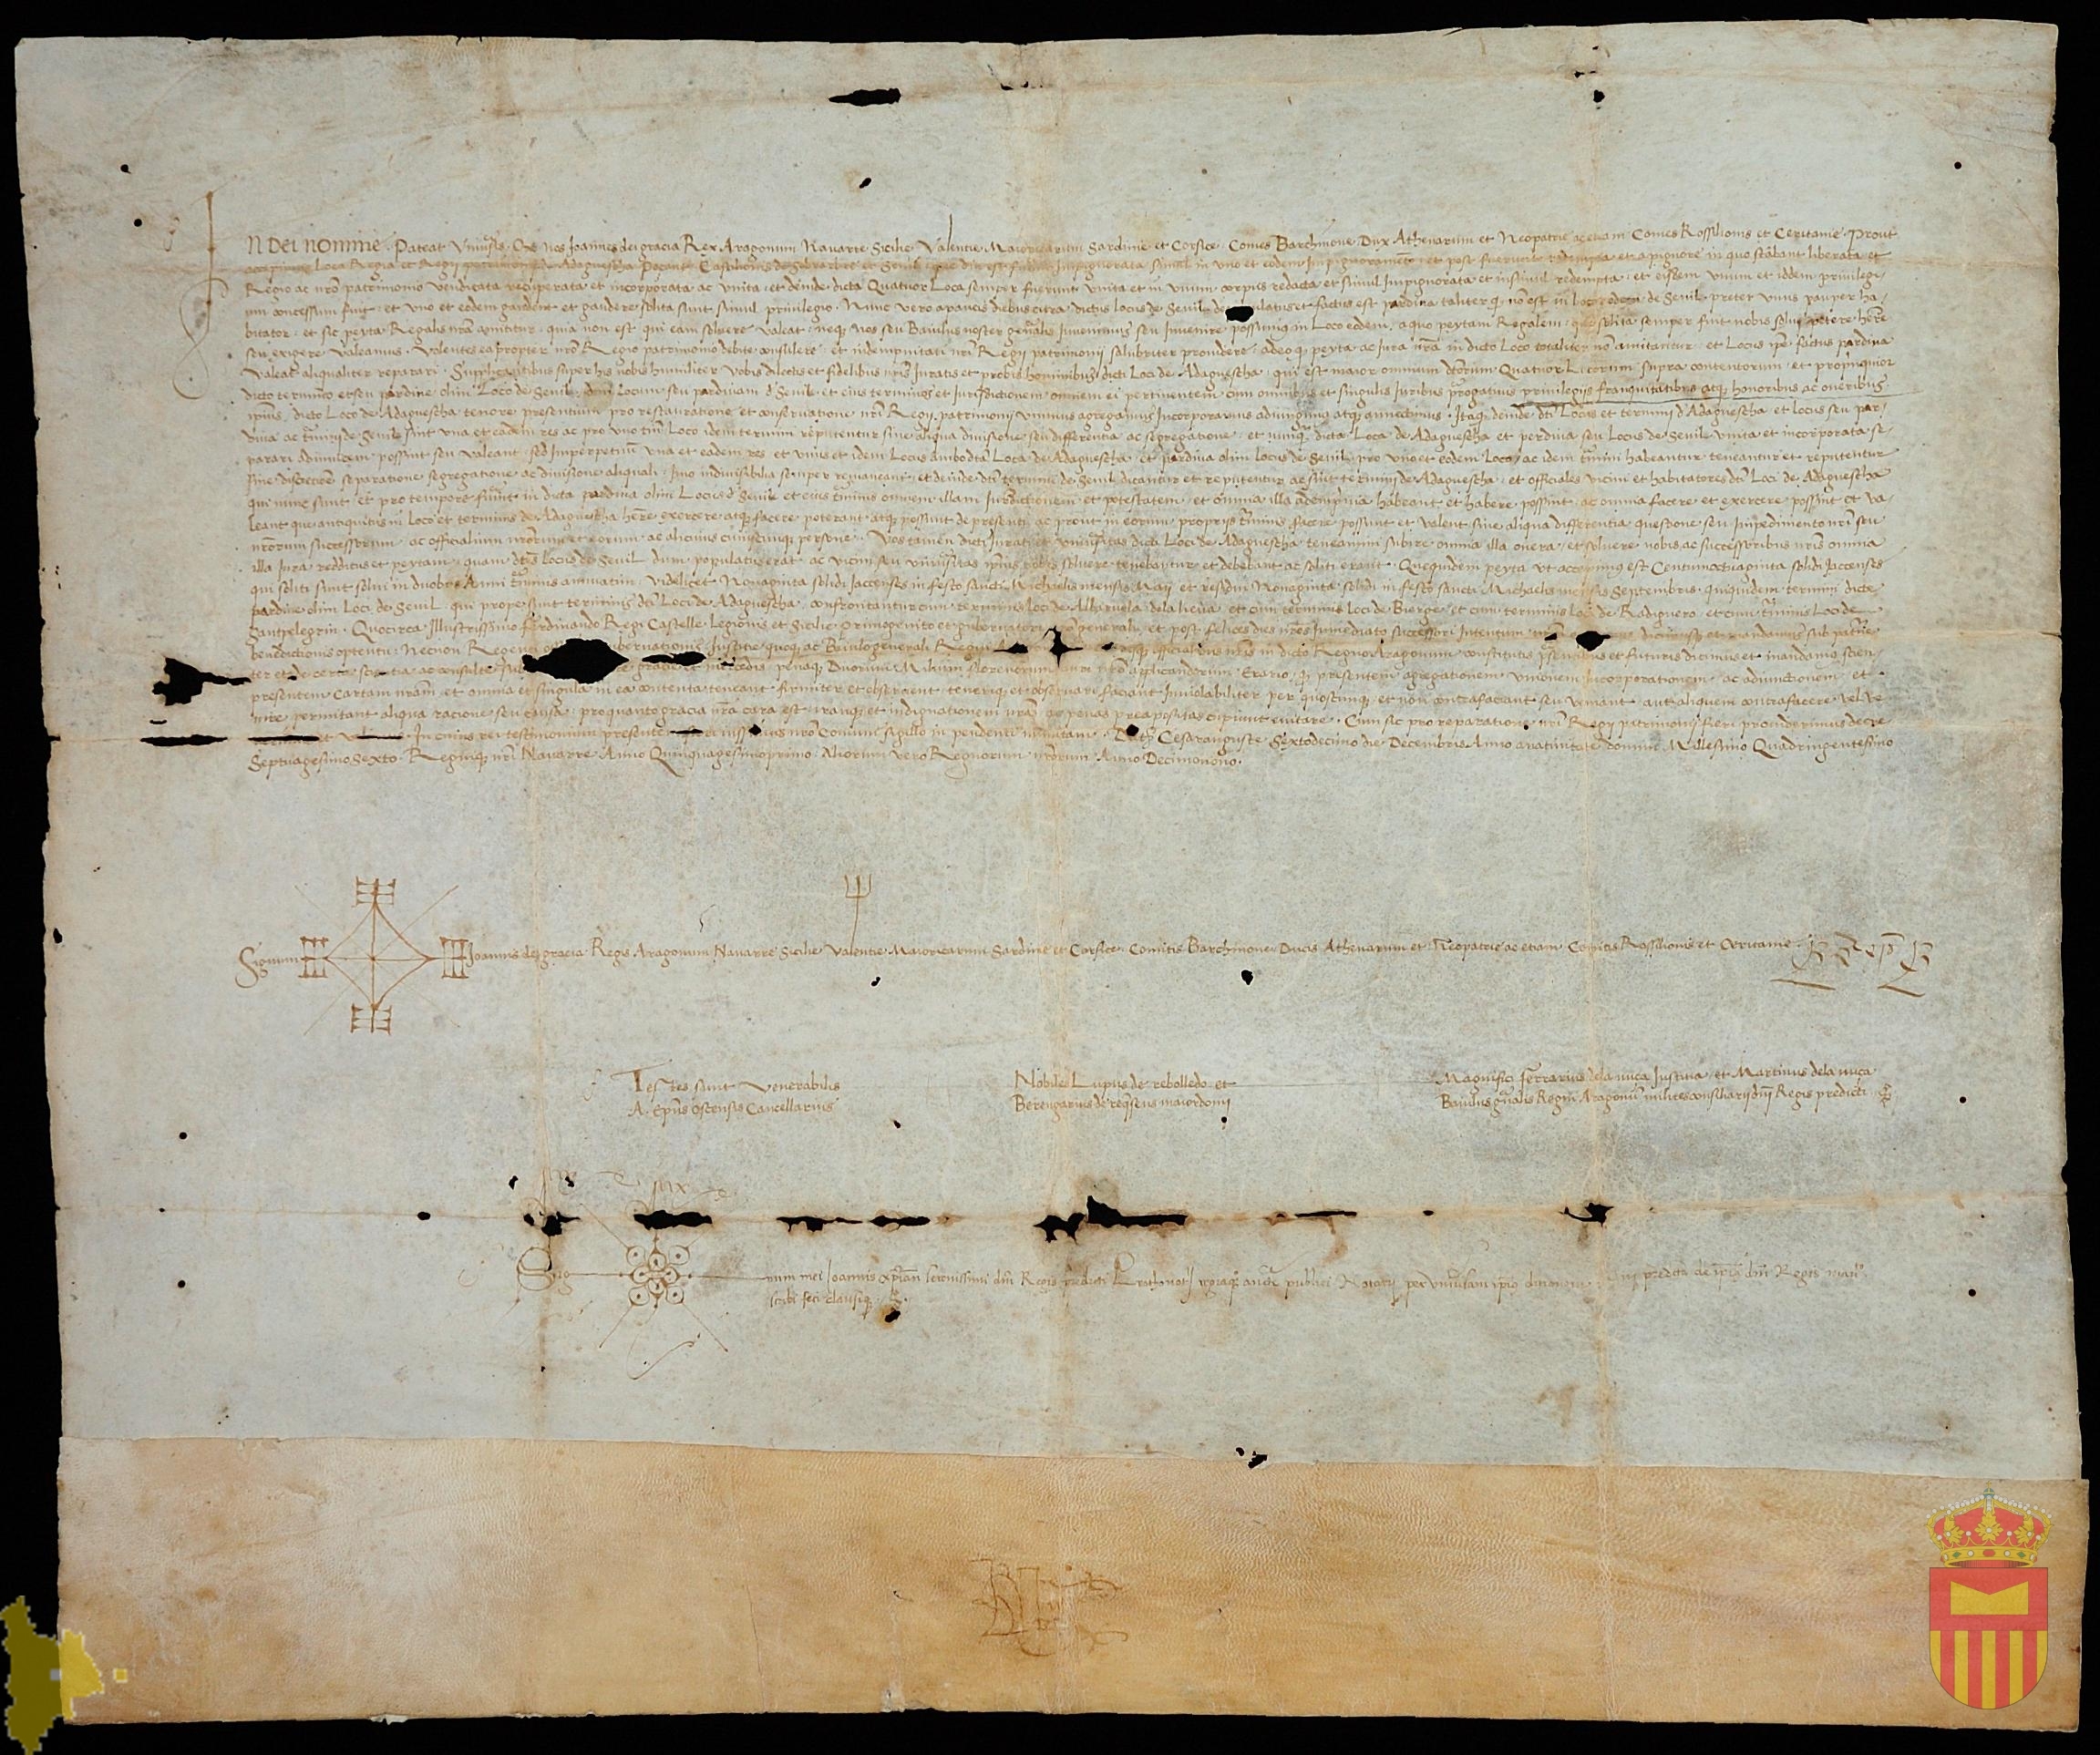 In Dei nomine. Pateat Universis. Qd nos Joannes dei gracia Rex Aragonum Navarre Sicilie Valentie Maioricarum Sardinie et Corsice. Comes Barchinone Dux Athenarum et Neopatrie ac etiam Comes Rossilionis et Ceritanie. Prout
accepimus Loca Regia et Regii patrimonii de Adaguescha Castillionis et Sevil Impignorata simul in uno et eodem Impignoramento et post fuerunt redempta et a pignore in quo stabant liberata et
Regio ac nro patrimonio vendicata recuperata et incorporata ac unita et deinde dicta Quatuor Loca semper fuerunt unita et in unum corpus redacta et simul Impignorata et insimul redempta et eisdem unum et iddem privilegi-
um concessum fuit et uno et eodem gaudent et gaudere solita sunt simul privilegio. Nunc vero a paucis diebus citra dictus locus de Sevil et factus est pardina taliter q non est in loco de Sevil preter unus pauper ha-
bitator et sic peyta Regalis nra amititur quia non est qui eam solvere valeat neq nos seu Baiulus noster gnalis Invenimus seu Invenire possumus in Loco eodem a quo peytam Regalem solita semper fuit nobis solvi petere here
seu exigere valeamus. Volentes ea propter nro Regio patrimonio debite consulere et indempnitati nri Regii patrimonii salubriter providere adeo q peyta ac Jura nra in dicto Loco totaliter no amitantur et Locus ipse factus pardina
valeat aliqualiter reparari. Supplicantibus super his nobis humiliter Vobis dilectis et fidelibus nris Juratis et probis hominibus dicti Loci de Adaguescha qui est maior omnium dctorum Quatuor Locorum supra contentorum et propinquior
dicto termino et seu pardine olim Loco de Sevil Locum seu pardinam d Sevil et eius terminos et Jurisdictionem omnem ei pertinentem cum omnibus et singulis Juribus prerogativis privilegiis franquitatibus atq honoribus ac oneribus
ipsius dicto Loco de Adaguescha tenore presentium pro restauratione et conservatione nri Regii patrimonii unimus agregamus Incorporamus adiungimus atq annectimus. Itaq deinde dti Locus et termini d Adaguescha et locus seu par-
dina ac termini de Sevil sint una et eadem res ac pro uno tm Loco idem termini reputentur sine aliqua divisione seu differentia ac segregatione et nunq dicta Loca de Adaguescha et perdina seu Locus de Sevil unita et incorporata se-
parari adinvicem possint seu valeant sed Imperpetuum una et eadem res et unus et idem Locus ambo dta Loca de Adaguescha et pardina olim locus de Sevil pro uno et eodem Loco ac idem termini habeantur teneantur et reputentur
sine discretione separatione segregatione ac divisione aliquali Imo indivisibilia semper remaneant et deinde dti termini de Sevil dicantur et reputentur ac sint termini de Adaguescha et officiales vicini et habitatores dti Loci de Adaguescha
qui nunc sunt et pro tempore fuerint in dicta pardina olim Locus d Sevil et eius terminis omnem illam Jurisdictionem et potestatem et omnia illa adempriuia habeant et habere possint ac omnia facere et exercere possint et va-
leant que antiquitus in loco et terminis de Adaguescha here exercere atq facere poterant atq possunt de presenti ac prout in eorum propriis terminis facere possunt et valent sine aliqua differentia questione seu Impedimento nri seu
nrorum successorum ac officialium nrorum et eorum ac alicuius cuiuscunq persone. Vos tamen dicti Jurati et universitas dicti Loci de Adaguescha teneamini subire omnia illa onera et solvere nobis ac successoribus nris omnia
illa Jura redditus et peytam quam dtus Locus de Sevil dum populatus erat ac vicini seu universitas ipsius nobis solvere tenebantur et debebant ac soliti erant. Quequidem peyta ut accepimus est Centum octuaginta solidi Jaccenses
qui soliti sunt solvi in duobus Anni terminis annuatim videlicet Nonaginta solidi Jaccenses in festo sancti Michaelis mensis Maii et residui Nonaginta solidi in festo sancti Michaelis mensis Septembris. quiquidem termini dicte
pardine olim Loci de Sevil qui prope sunt terminis dti Loci de Adaguescha confrontantur cum terminis loci de Alberuela dela lieua et cum terminis loci de Bierge et cum terminis loci de Radiguero et cum terminis Loci de
Santpelegrin. Quocirca Illustrissimo Ferdinando Regi Castelle Legionis et Sicilie primogenito et gubernatori generali et post felices dies nros Immediato successori Intentum dicimus et mandamus sub paterne
benedictionis optentu. Necnon Regenti gubernationis Justitie quoq ac Baiulo generali Regni officialibus nris in dicto Regno Aragonum constitutis presentibus et futuris dicimus et mandamus scien-
ter et de certa scientia ac consulte gracie et mercedis penaq Duorum Milium florenorum nro applicandorum Erario q presentem agregationem unionem Incorporationem ac adiunctionem et
presentem Cartam nram et omnia et singula in ea contenta teneant firmiter et observent teneriq et observari faciant Inviolabiliter per quoscunq et non contrafaciant seu veniant aut aliquem contrafacere vel ve-
nire permitant aliqua racione seu causa pro quanto gracia nra cara est iramq et indignationem nram ac penas preapositas cupiunt evitare. Cum sic pro reparatione nri Regii patrimonii fieri providerimus decre
In cuius rei testimonium presentem fieri iussimus nro Comuni sigillo in pendenti munitam. Datis Cesarauguste Sextodecimo die Decembris Anno a nativitate domini Millesimo Quadringentesimo
Septuagesimo Sexto. Regniq nri Navarre Anno Quinquagesimo primo. Aliorum vero Regnorum nrorum Anno Decimonono.
Signum Joannis dei gracia Regis Aragonum Navarre Sicilie Valentie Maioricarum Sardinie et Corsice. Comitis Barchinone Ducis Athenarum et Neopatrie ac etiam Comitis Rossilionis et Ceritanie.
Testes sunt Venerabilis
A. Epus Oscensis Cancellarius
Nobiles Lupus de rebolledo et
Berengarius de reqsens maiordomi
Magnifici Ferrarius dela nuça Justitia et Martinus dela nuça
Baiulus gnalis Regni Aragonu milites consiliarii dni Regis predicti
Sig num mei Joannis xpian serenissimi dni Regis predicti Prothnot publici Notarii per universam dni Regis
scribi feci clausiq